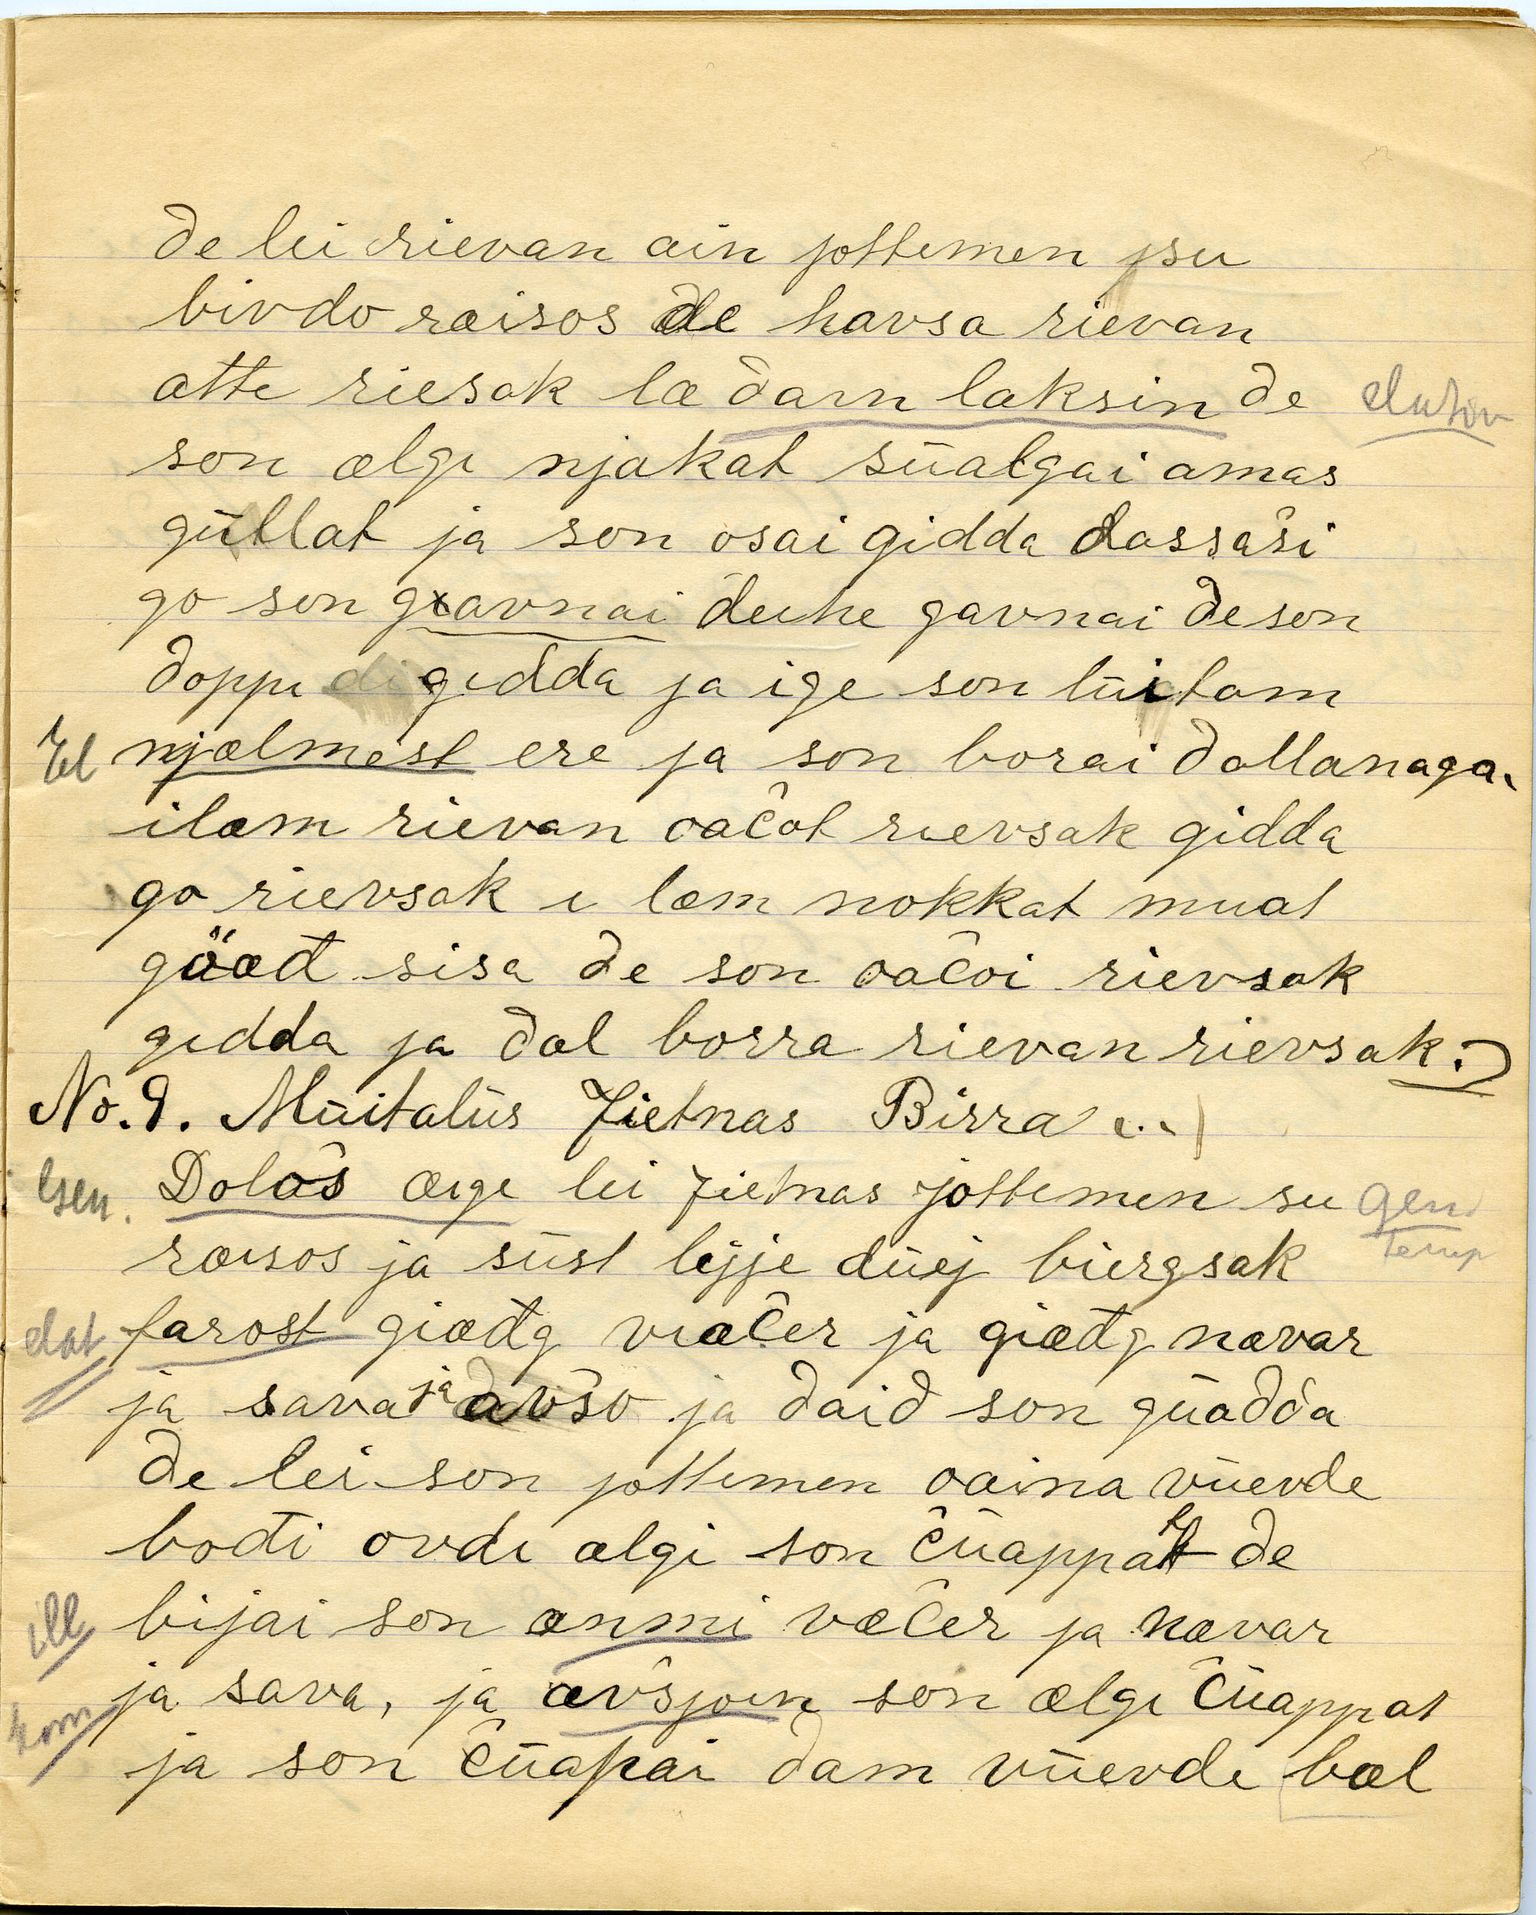 de lei rievan ain jottemen su
bivdo raisos de havsa rievan
atte riesak læ dam laksin de
son ælgi njakat süalgai amas
güllat ja son osai gidda dassaši
go son gavnai deihe gavnai de son
doppi gidda ja ige son lüitam
El njælmest ere ja son borai dollanaga.
ilæm rievan oačot rievsak gidda
go rievsak i læm nokkat muat
göæđ sisa de son oačoi rievsak
gidda ja dal borra rievan rievsak.
No. 9. Müitalüs Jietnas Birra ...
Gen. Dolaš æige lei Jietnas jottemen su gen
temp
ræisos ja süst lejje düej biergsak
dat farost giæđg væčer ja giæđg navar
ja sava ja avšo ja daid son güadda
de lei son jottemen oaina vüevde
bođi ovdi ælgi son čüappat de
ill bijai son anmi væčer ja navar
kom ja sava, ja avšjoin son ælgi čüappat
ja son čüapai dam vüevde bæl